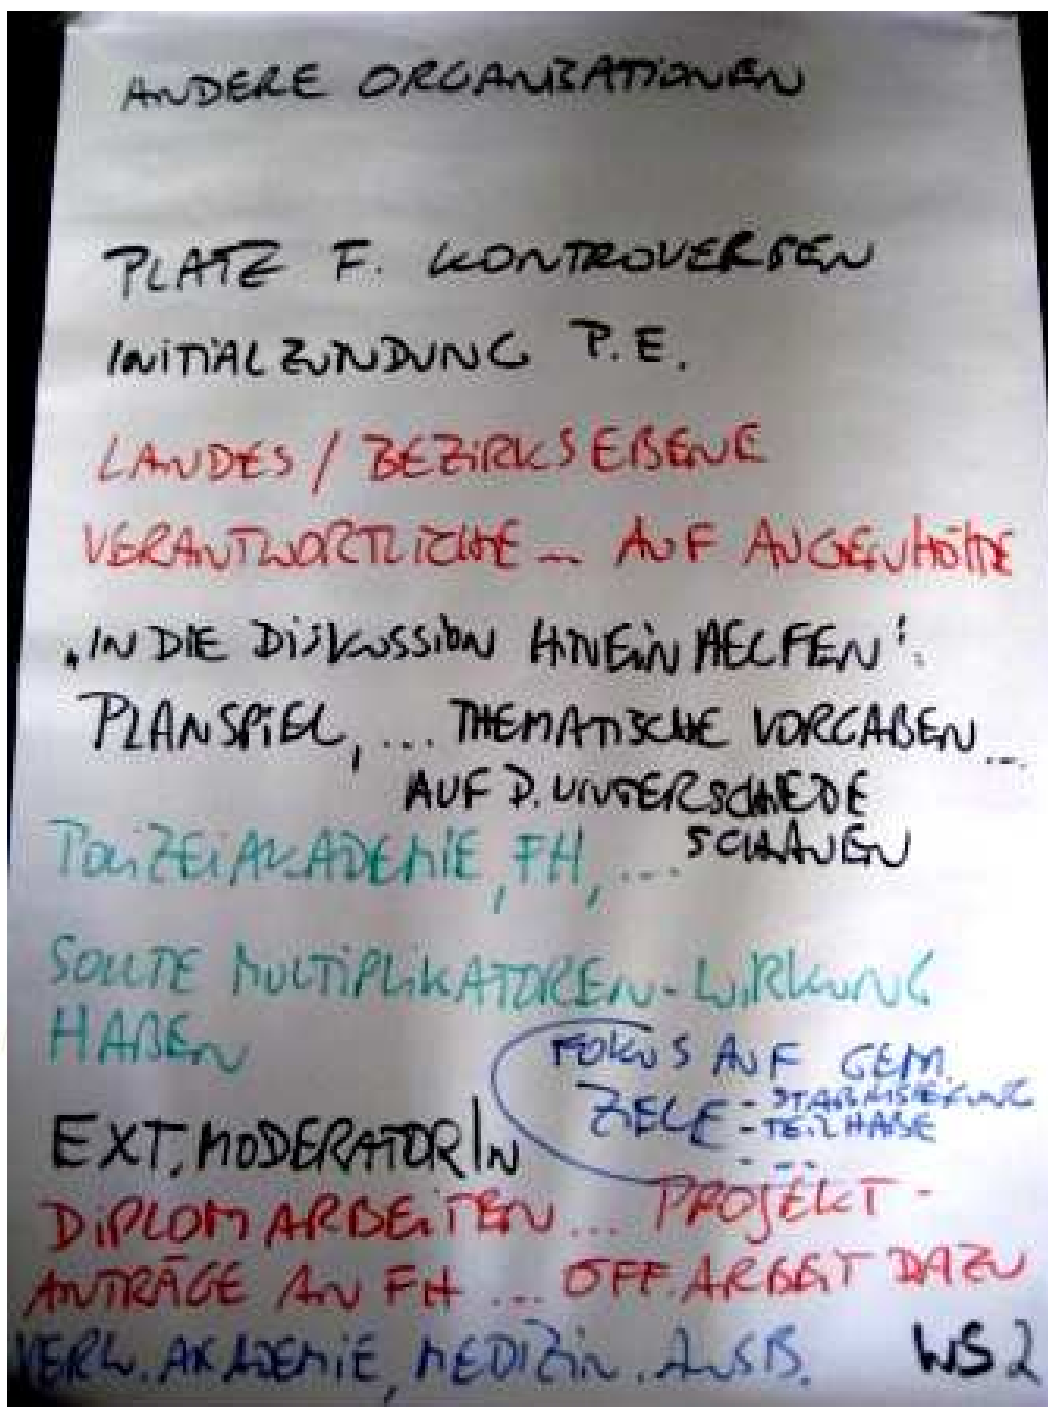 ANDERE ORGANISATIONEN
PLATZ F. KONTROVERSEN
INITIALZÜNDUNG P.E.
LANDES / BEZIRKSEBENE
VERANTWORTLICHE ... AUF AUGENHÖHE
„IN DIE DISKUSSION HINEINHELFEN“:
PLANSPIEL, ... THEMATISCHE VORGABEN ...
AUF D. UNTERSCHIEDE
SCHAUEN
POLIZEIAKADEMIE, FH, ...
SOLLTE MULTIPLIKATOREN-WIRKUNG
HABEN
FOKUS AUF GEM.
ZIELE - STABILISIERUNG
- TEILHABE
- ...
EXT. MODERATORIN
DIPLOMARBEITEN ... PROJEKT-
ANTRÄGE AN FH ... ÖFF. ARBEIT DAZU
VERW. AKADEMIE, MEDIZIN. AUSB.
WS 2